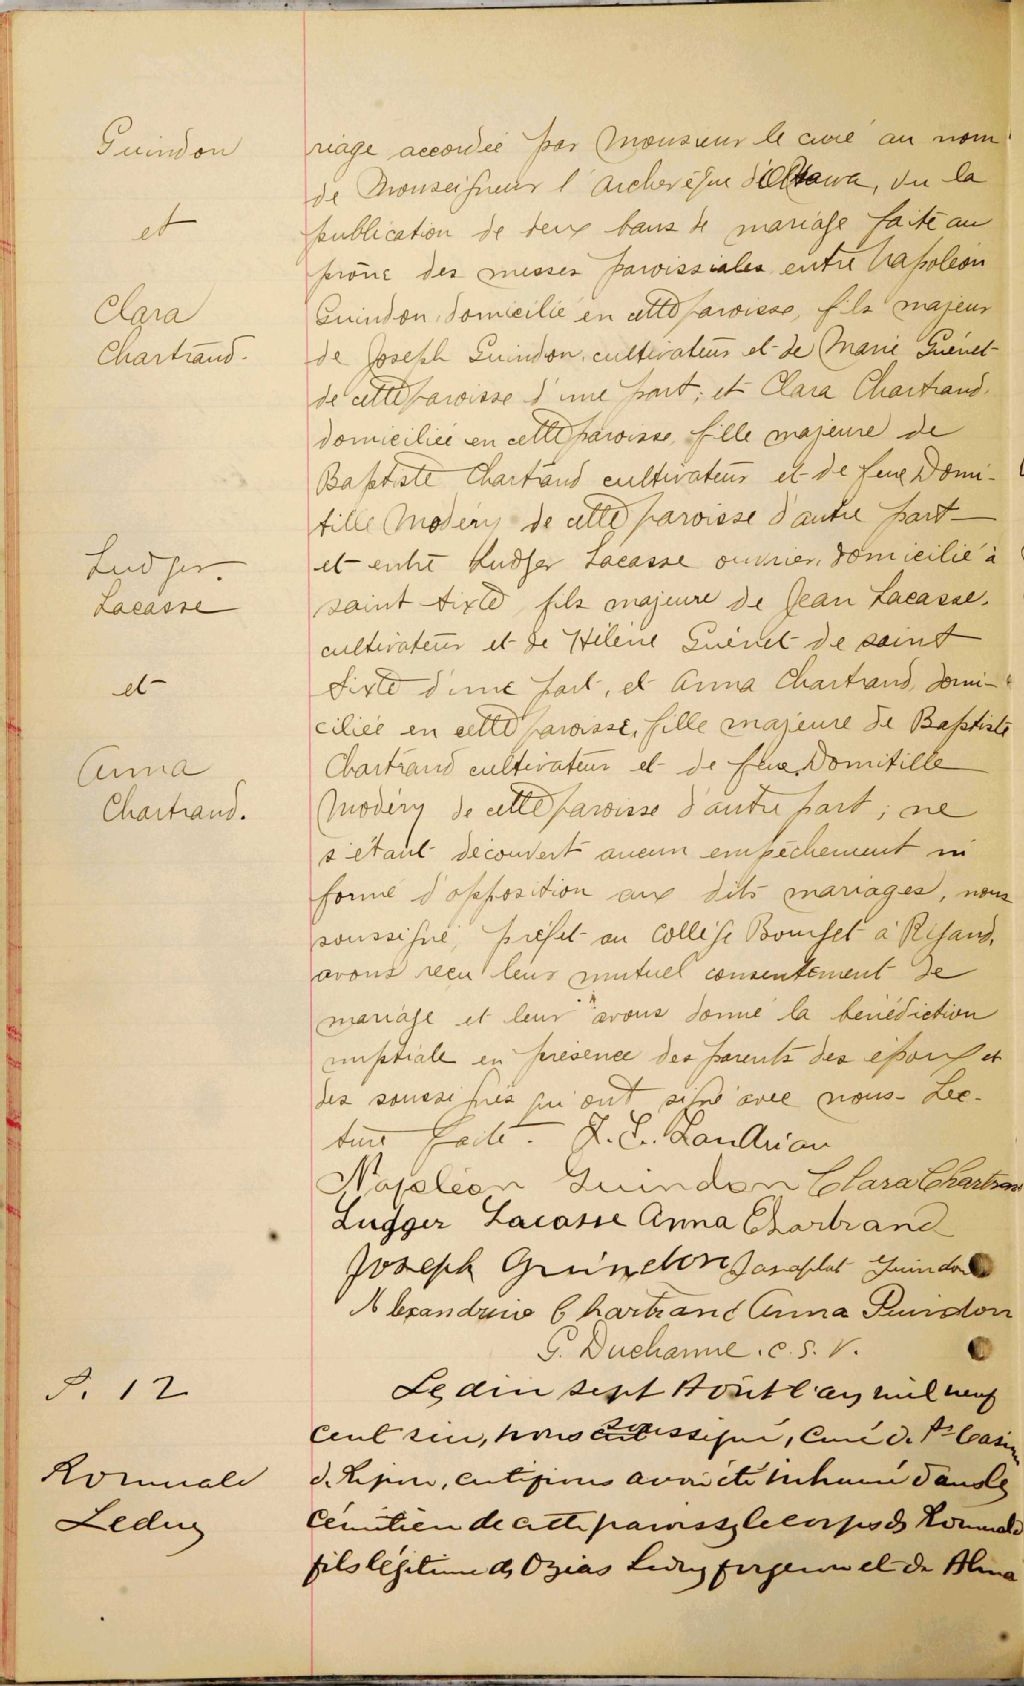 Guindon
et
Clara
Chartrand.
riage accordée par Monsieur le curé au nom
de Monseigneur l'archevêque d'Ottawa, vu la
publication de deux bans de mariage faite au
prône des messes paroissiales entre Napoléon
Guindon, domicilié en cette paroisse, fils majeur
de Joseph Guindon, cultivateur et de Marie Guénet
de cette paroisse d'une part; et Clara Chartrand,
domiciliée en cette paroisse, fille majeure de
Baptiste Chartrand cultivateur et de feue Domi-
tille Modéry de cette paroisse d'autre part —
Ludger
Lacasse
et
Anna
Chartrand.
et entre Ludger Lacasse ouvrier, domicilié à
saint Sixte, fils majeure de Jean Lacasse,
cultivateur et de Hélène Guénet de saint
Sixte d'une part, et Anna Chartrand, domi-
ciliée en cette paroisse, fille majeure de Baptiste
Chartrand cultivateur et de feue Domitille
Modéry de cette paroisse d'autre part; ne
s'étant découvert aucun empêchement ni
formé d'opposition aux dits mariages, nous
soussigné, préfet au collège Bourget à Rigaud,
avons reçu leur mutuel consentement de
mariage et leur avons donné la bénédiction
nuptiale en présence des parents des époux et
des soussignés qui ont signé avec nous. Lec-
ture faite. J. E. Landriau
Napoléon Guindon Clara Chartrand
Ludger Lacasse Anna Chartrand
Joseph Guindon Josaphat Guindon
Alexandrine Chartrand Anna Guindon
G. Ducharme. c. s. v.
S. 12
Romuald
Leduc
Le dix sept Août l'an mil neuf
cent six, nous soussigné, curé de St Casimir
de Ripon, certifions avoir été inhumé dans le
cémitière de cette paroisse, le corps de Romuald
fils légitime de Ozias Leduc forgeron et de Alma